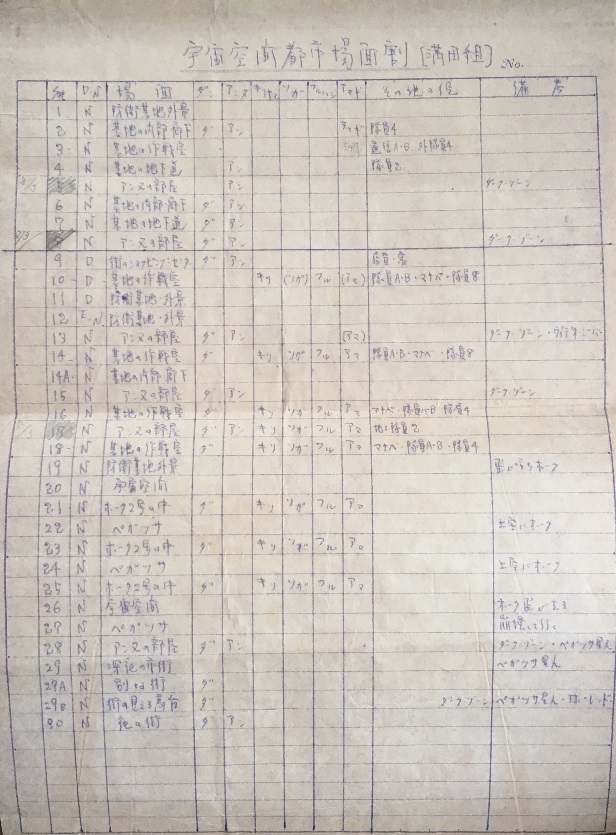 宇宙空間都市場面割〔満田組〕 No.
S# D.N 場面 ダン アンヌ キリヤマ ソガ フルハシ アマギ その他の役 備考
1 N 防衛基地外景
2 N 基地の内部廊下 ダ アン 隊員4
3 N 基地の作戦室 通信A・B 隊員4
4 N 基地の地下道 アン 隊員2
5 N アンヌの部屋 アン ダーク・ゾーン
6 N 基地の内部廊下 ダ アン
7 N 基地の地下道 ダ アン
8 N アンヌの部屋 ダ アン ダーク・ゾーン
9 D 街のショッピングセンター ダ アン 店員・客
10 D 基地の作戦室 キリ (ソガ) フル (アマ) 隊員A・B・マナベ・隊員8
11 D 防衛基地・外景
12 E.N 防衛基地・外景
13 N アンヌの部屋 ダ アン (アマ) ダーク・ゾーン
14 N 基地の作戦室 ダ キリ ソガ フル アマ 隊員A・B・マナベ・隊員8
14A N 基地の内部廊下
15 N アンヌの部屋 ダ アン ダーク・ゾーン
16 N 基地の作戦室 ダ キリ ソガ フル アマ マナベ・隊員A・B 隊員4
17 N アンヌの部屋 ダ アン キリ ソガ フル アマ 隊員2
18 N 基地の作戦室 キリ ソガ フル アマ マナベ・隊員A・B・隊員4
19 N 防衛基地外景
20 N 宇宙空間
21 N ホーク2号の中 ダ キリ ソガ フル アマ
22 N ペガッサ 上空にホーク
23 N ホーク2号の中 ダ キリ ソガ フル アマ
24 N ペガッサ 上空にホーク
25 N ホーク2号の中 ダ キリ ソガ フル アマ
26 N 宇宙空間
27 N ペガッサ 崩壊して行く
28 N アンヌの部屋 ダ アン ダーク・ゾーン・ペガッサ星人
29 N 深夜の市街 ダ ペガッサ星人
29A N 別な街 ダ
29B N 街の見える高台 ダ ダーク・ゾーン・ペガッサ星人
30 N 夜の街 ダ アン